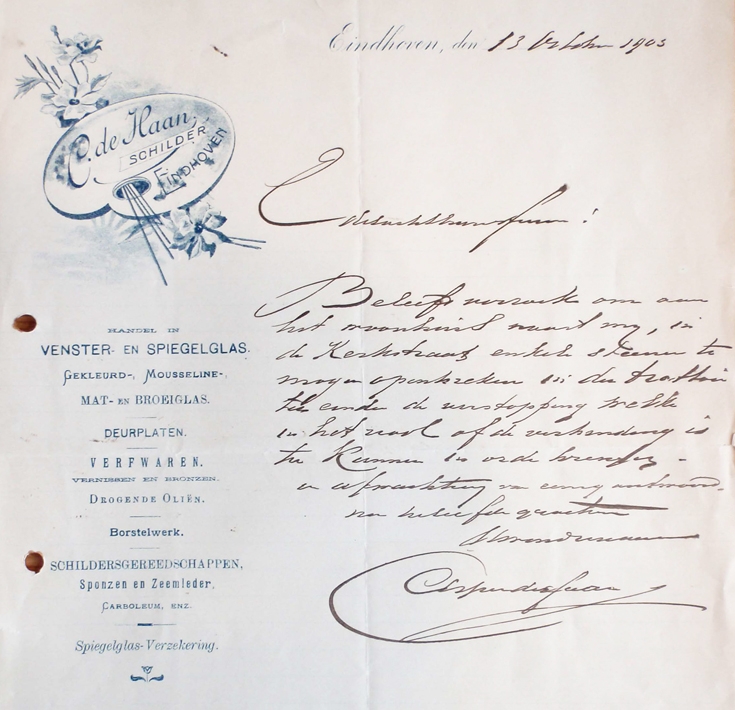 Eindhoven, den 13 October 1903
C. de Haan,
SCHILDER
EINDHOVEN
Edelachtbare Heeren!
HANDEL IN
VENSTER- EN SPIEGELGLAS.
GEKLEURD-, MOUSSELINE-,
MAT- EN BROEIGLAS.
DEURPLATEN.
VERFWAREN.
VERNISSEN EN BRONZEN.
DROGENDE OLIËN.
Borstelwerk.
SCHILDERSGEREEDSCHAPPEN,
Sponzen en Zeemleder,
CARBOLEUM, ENZ.
Spiegelglas-Verzekering.
Beleefd verzoek om aan
het woonhuis naast mij, in
de Kerkstraat enkele steenen te
mogen openbreken in der trottoir
ten einde de verstopping welke
in het riool of de verbinding is
te kunnen in orde brengen -
in afwachting van antwoord
na beleefde groeten